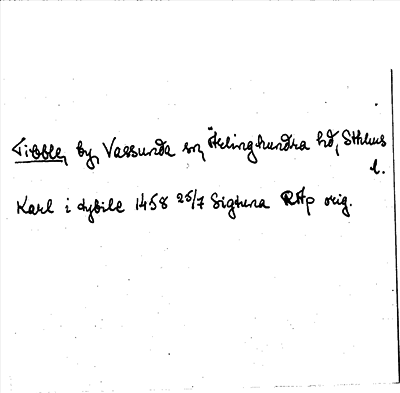 Tibble, by, Vassunda sn, Ärlinghundra hd, Sthlms
l.
Karl i dybile 1458 25/7 Sigtuna RAp orig.